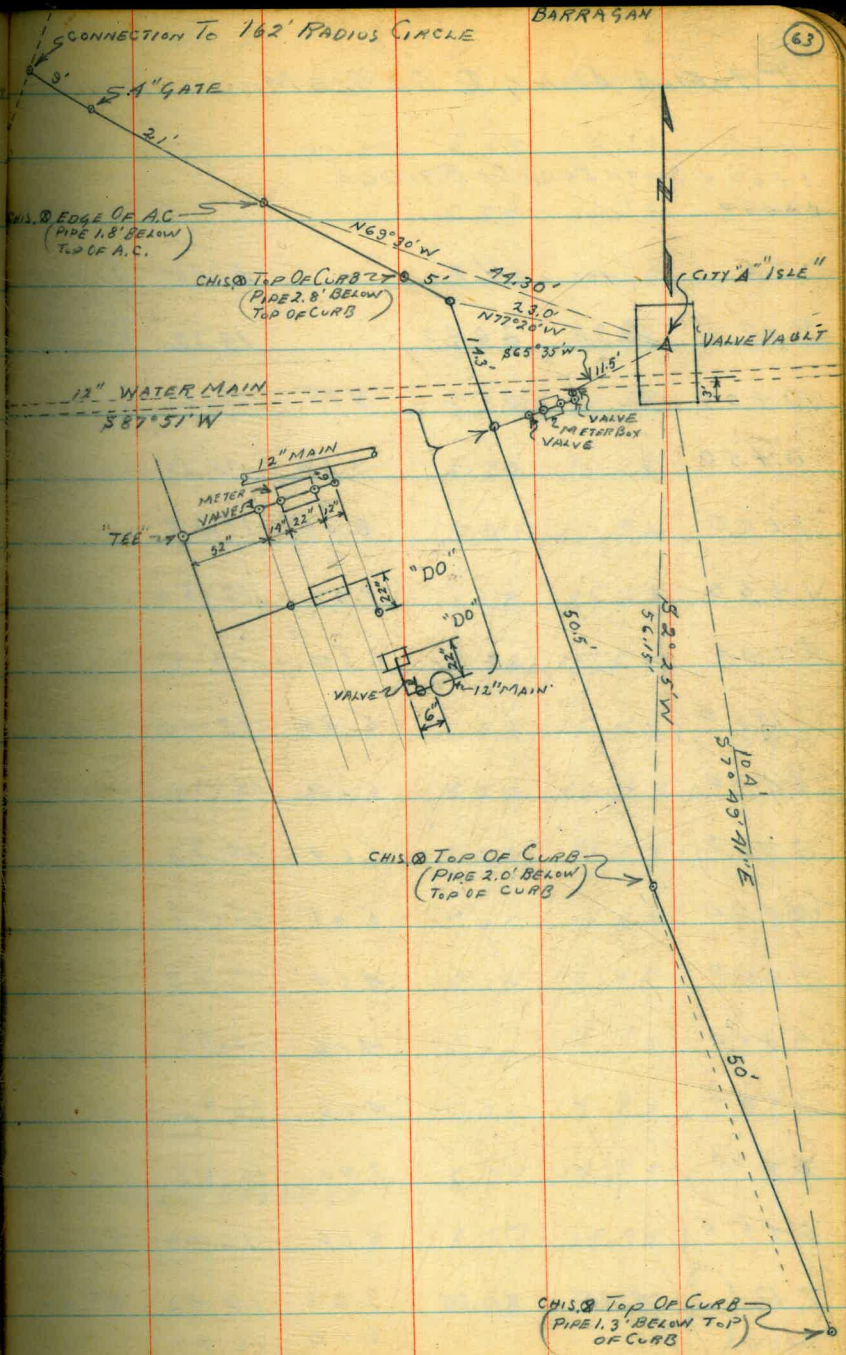 BARRAGAN
63
CONNECTION TO 162' RADIUS CIRCLE
9'
4" GATE
21'
CHIS. ⊗ EDGE OF A.C.
(PIPE 1.8' BELOW
TOP OF A.C.)
N69°30'W
44.30'
CHIS ⊗ TOP OF CURB
(PIPE 2.8' BELOW
TOP OF CURB)
5'
23.0'
N77°20'W
N
CITY "A" ISLE"
VALVE VAULT
14.3'
S65°35'W
11.5'
3'
12" WATER MAIN
S87°51'W
VALVE
METER BOX
VALVE
12" MAIN
METER
VALVE
6"
"TEE"
52"
14"
22"
12"
"DO"
22"
"DO"
22"
VALVE
12" MAIN
6"
50.5'
S2°25'W
56.15'
104'
S7°49'41"E
CHIS ⊗ TOP OF CURB
(PIPE 2.0' BELOW
TOP OF CURB)
50'
CHIS. ⊗ TOP OF CURB
(PIPE 1.3' BELOW TOP
OF CURB)